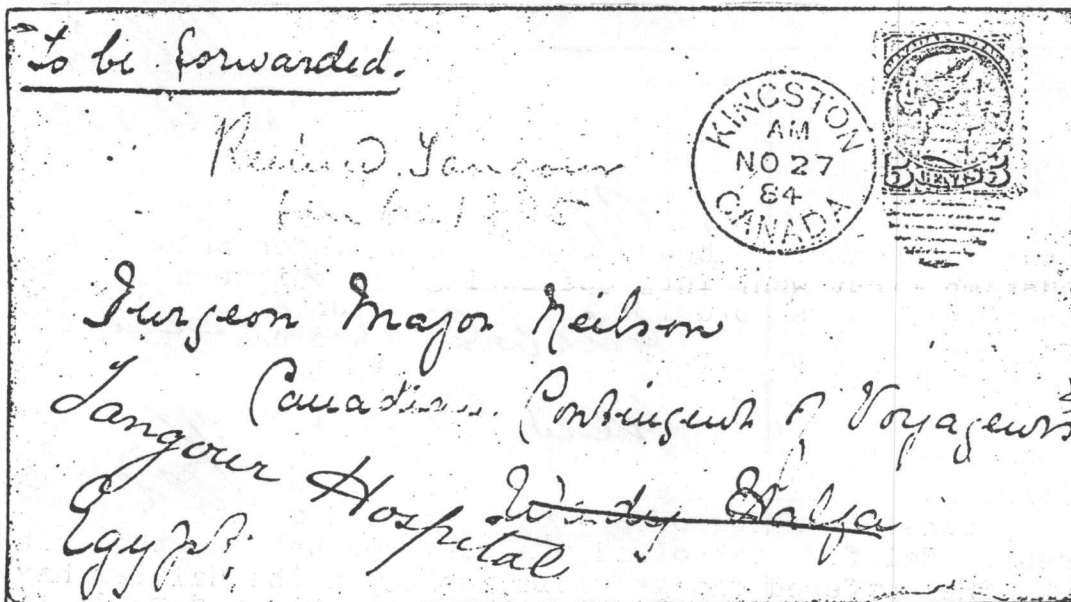 To be forwarded.
Recieved Tangour
KINGSTON
AM
NO 27
84
CANADA
5 5
Surgeon Major Neilson
Canadian Contingent of Voyageurs
Tangour Hospital
Wady Halfa
Egypt.